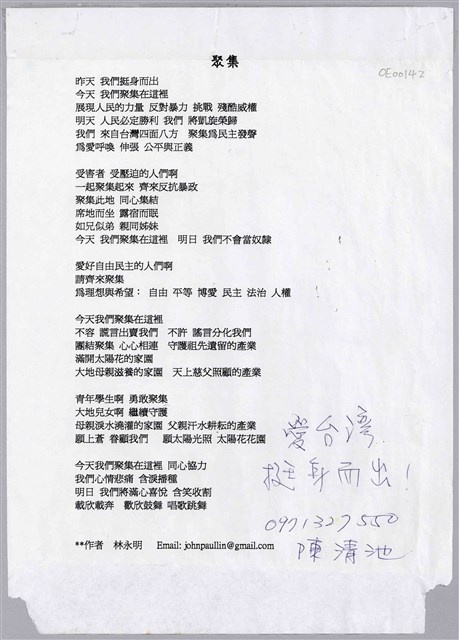 聚集
OE00142
昨天 我們挺身而出
今天 我們聚集在這裡
展現人民的力量 反對暴力 挑戰 殘酷威權
明天 人民必定勝利 我們 將凱旋榮歸
我們 來自台灣四面八方　聚集為民主發聲
為愛呼喚 伸張 公平與正義
受害者 受壓迫的人們啊
一起聚集起來 齊來反抗暴政
聚集此地 同心集結
席地而坐 露宿而眠
如兄似弟 親同姊妹
今天 我們聚集在這裡　明日 我們不會當奴隸
愛好自由民主的人們啊
請齊來聚集
為理想與希望： 自由 平等 博愛 民主 法治 人權
今天我們聚集在這裡
不容 謊言出賣我們　不許 謠言分化我們
團結聚集 心心相連　守護祖先遺留的產業
滿開太陽花的家園
大地母親滋養的家園　天上慈父照顧的產業
青年學生啊 勇敢聚集
大地兒女啊 繼續守護
母親淚水澆灌的家園 父親汗水耕耘的產業
願上蒼 眷顧我們　願太陽光照 太陽花花園
今天我們聚集在這裡 同心協力
我們心情悲痛 含淚播種
明日 我們將滿心喜悅 含笑收割
載欣載奔　歡欣鼓舞 唱歌跳舞
**作者　林永明　Email: johnpaullin@gmail.com
愛台湾
挺身而出！
0971327550
陳清池